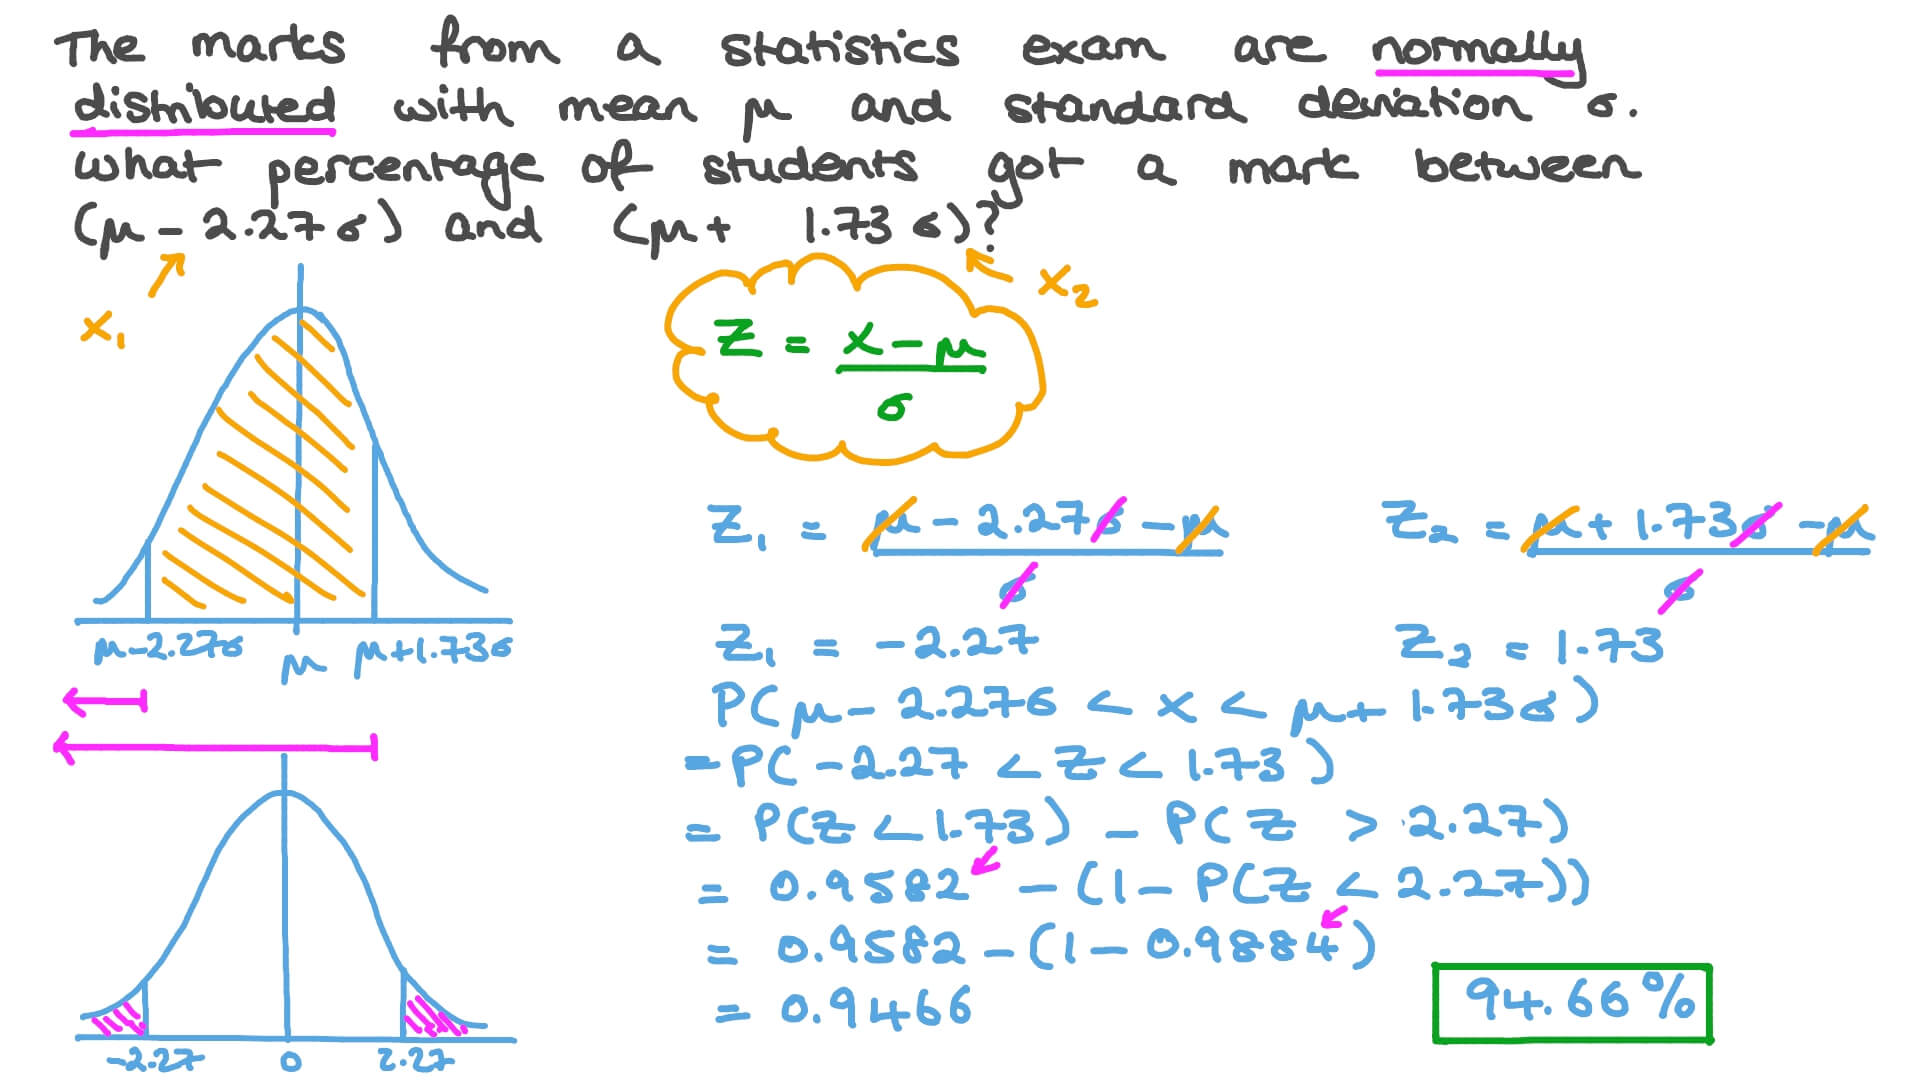 The marks from a statistics exam are normally
distributed with mean μ and standard deviation σ.
what percentage of students got a mark between
(μ - 2.27σ) and (μ + 1.73σ)?
x₁
x₂
Z = (x - μ) / σ
μ-2.27σ μ μ+1.73σ
Z₁ = (μ - 2.27σ - μ) / σ
Z₂ = (μ + 1.73σ - μ) / σ
Z₁ = -2.27
Z₂ = 1.73
P(μ - 2.27σ < x < μ + 1.73σ)
= P(-2.27 < Z < 1.73)
= P(Z < 1.73) - P(Z > 2.27)
= 0.9582 - (1 - P(Z < 2.27))
= 0.9582 - (1 - 0.9884)
= 0.9466
94.66%
-2.27 0 2.27